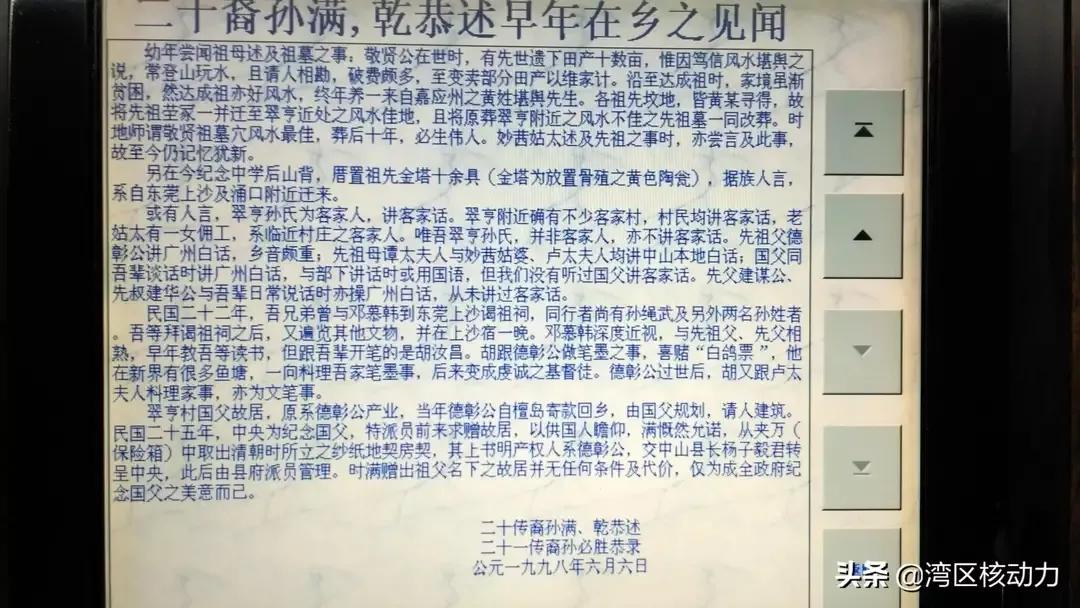 二十裔孙满,乾恭述早年在乡之见闻
幼年尝闻祖母述及祖墓之事：敬贤公在世时，有先世遗下田产十数亩，惟因笃信风水堪舆之
说，常登山玩水，且请人相勘，破费颇多，至变卖部分田产以维家计。沿至达成祖时，家境虽渐
贫困，然达成祖亦好风水，终年养一来自嘉应州之黄姓堪舆先生。各祖先坟地，皆黄某寻得，故
将先祖茔冢一并迁至翠亨近处之风水佳地，且将原葬翠亨附近之风水不佳之先祖墓一同改葬。时
地师谓敬贤祖墓穴风水最佳，葬后十年，必生伟人。妙茜姑太述及先祖之事时，亦尝言及此事，
故至今仍记忆犹新。
另在今纪念中学后山背，厝置祖先金塔十余具（金塔为放置骨殖之黄色陶瓮），据族人言，
系自东莞上沙及涌口附近迁来。
或有人言，翠亨孙氏为客家人，讲客家话。翠亨附近确有不少客家村，村民均讲客家话，老
姑太有一女佣工，系临近村庄之客家人。唯吾翠亨孙氏，并非客家人，亦不讲客家话。先祖父德
彰公讲广州白话，乡音颇重；先祖母谭太夫人与妙茜姑婆、卢太夫人均讲中山本地白话；国父同
吾辈谈话时讲广州白话，与部下讲话时或用国语，但我们没有听过国父讲客家话。先父建谋公、
先叔建华公与吾辈日常说话时亦操广州白话，从未讲过客家话。
民国二十二年，吾兄弟曾与邓慕韩到东莞上沙谒祖祠，同行者尚有孙绳武及另外两名孙姓者
。吾等拜谒祖祠之后，又遍览其他文物，并在上沙宿一晚。邓慕韩深度近视，与先祖父、先父相
熟，早年教吾等读书，但跟吾辈开笔的是胡汝昌。胡跟德彰公做笔墨之事，喜赌“白鸽票”，他
在新界有很多鱼塘，一向料理吾家笔墨事，后来变成虔诚之基督徒。德彰公过世后，胡又跟卢太
夫人料理家事，亦为文笔事。
翠亨村国父故居，原系德彰公产业，当年德彰公自檀岛寄款回乡，由国父规划，请人建筑。
民国二十五年，中央为纪念国父，特派员前来求赠故居，以供国人瞻仰，满慨然允诺，从夹万（
保险箱）中取出清朝时所立之纱纸地契房契，其上书明产权人系德彰公，交中山县长杨子毅君转
呈中央，此后由县府派员管理。时满赠出祖父名下之故居并无任何条件及代价，仅为成全政府纪
念国父之美意而已。
二十传裔孙满、乾恭述
二十一传裔孙必胜恭录
公元一九九八年六月六日
头条 @湾区核动力